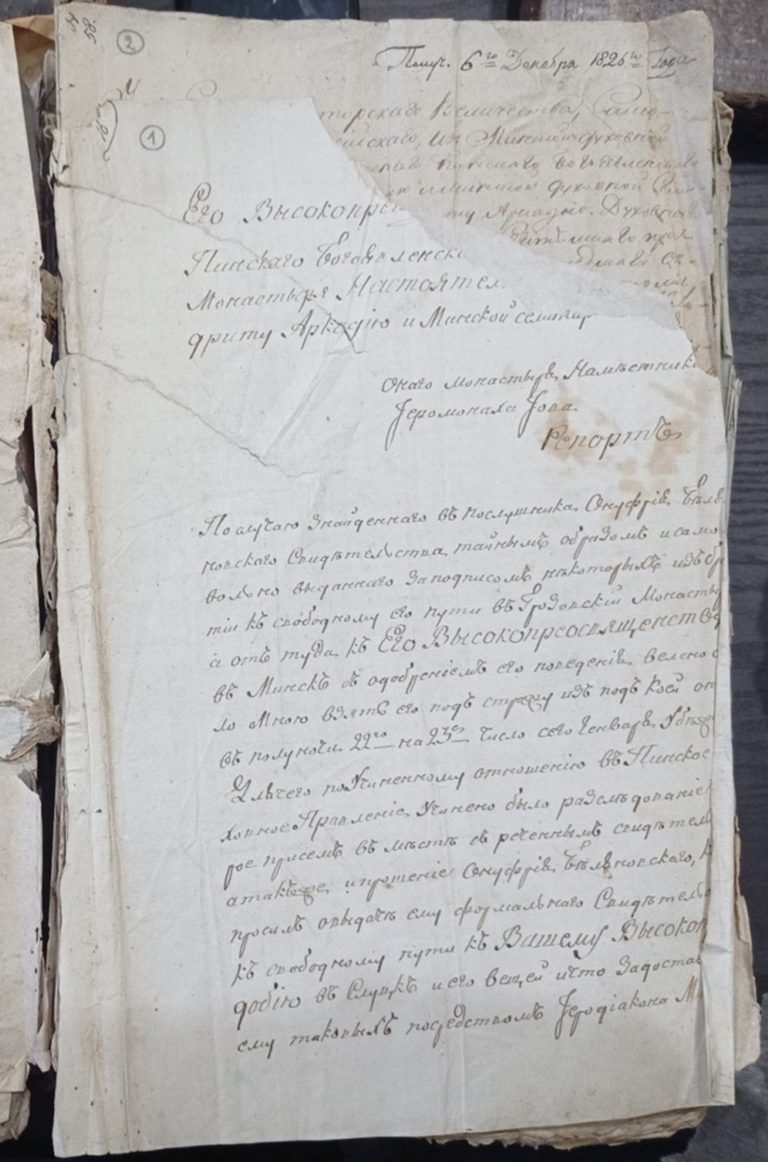 2
Получ. 6го Декабря 1826го Года
1
торскаго Величества, Само-
ейскаго, из Минской духовной
Пинскаго Богоявленскаго
Минской духовной Семи
ту Аркадію. Духовна
Его Высокопре
Пинскаго Богоявленска
Монастыря Настоятел
дриту Аркадію и Минской семинар
Онаго монастыря Намѣстника
Іеромонаха Іова
Репортъ
По случаю знайденнаго въ послушника Онуфрія Бѣля
новскаго Свидѣтельства, тайнымъ образомъ и само
вольно выданнаго за подписомъ нѣкоторыхъ изъ бра
тіи къ свободному его пути въ Грозовскій Монастыр
а отъ туда къ Его Высокопреосвященству
въ Минскъ съ одобреніемъ его поведенія, велено б
ло Мною взять его подъ стражу изъ подъ коей он
въ полуночи 22го на 23е число сего Генваря убѣ
Для чего по учиненному отношенію въ Пинское
ховное Правленіе, учинено было разслѣдованіе
рое при семъ въ мѣстѣ съ реченнымъ свидѣтел
а также и прошеніе Онуфрія Бѣляновскаго,
просилъ о выдачѣ ему формальнаго Свидѣтель
къ свободному пути къ Вашему Высокоп
добію въ Слуцкъ и его вещей и что за достав
ему таковыхъ посредствомъ Іеродіакона М